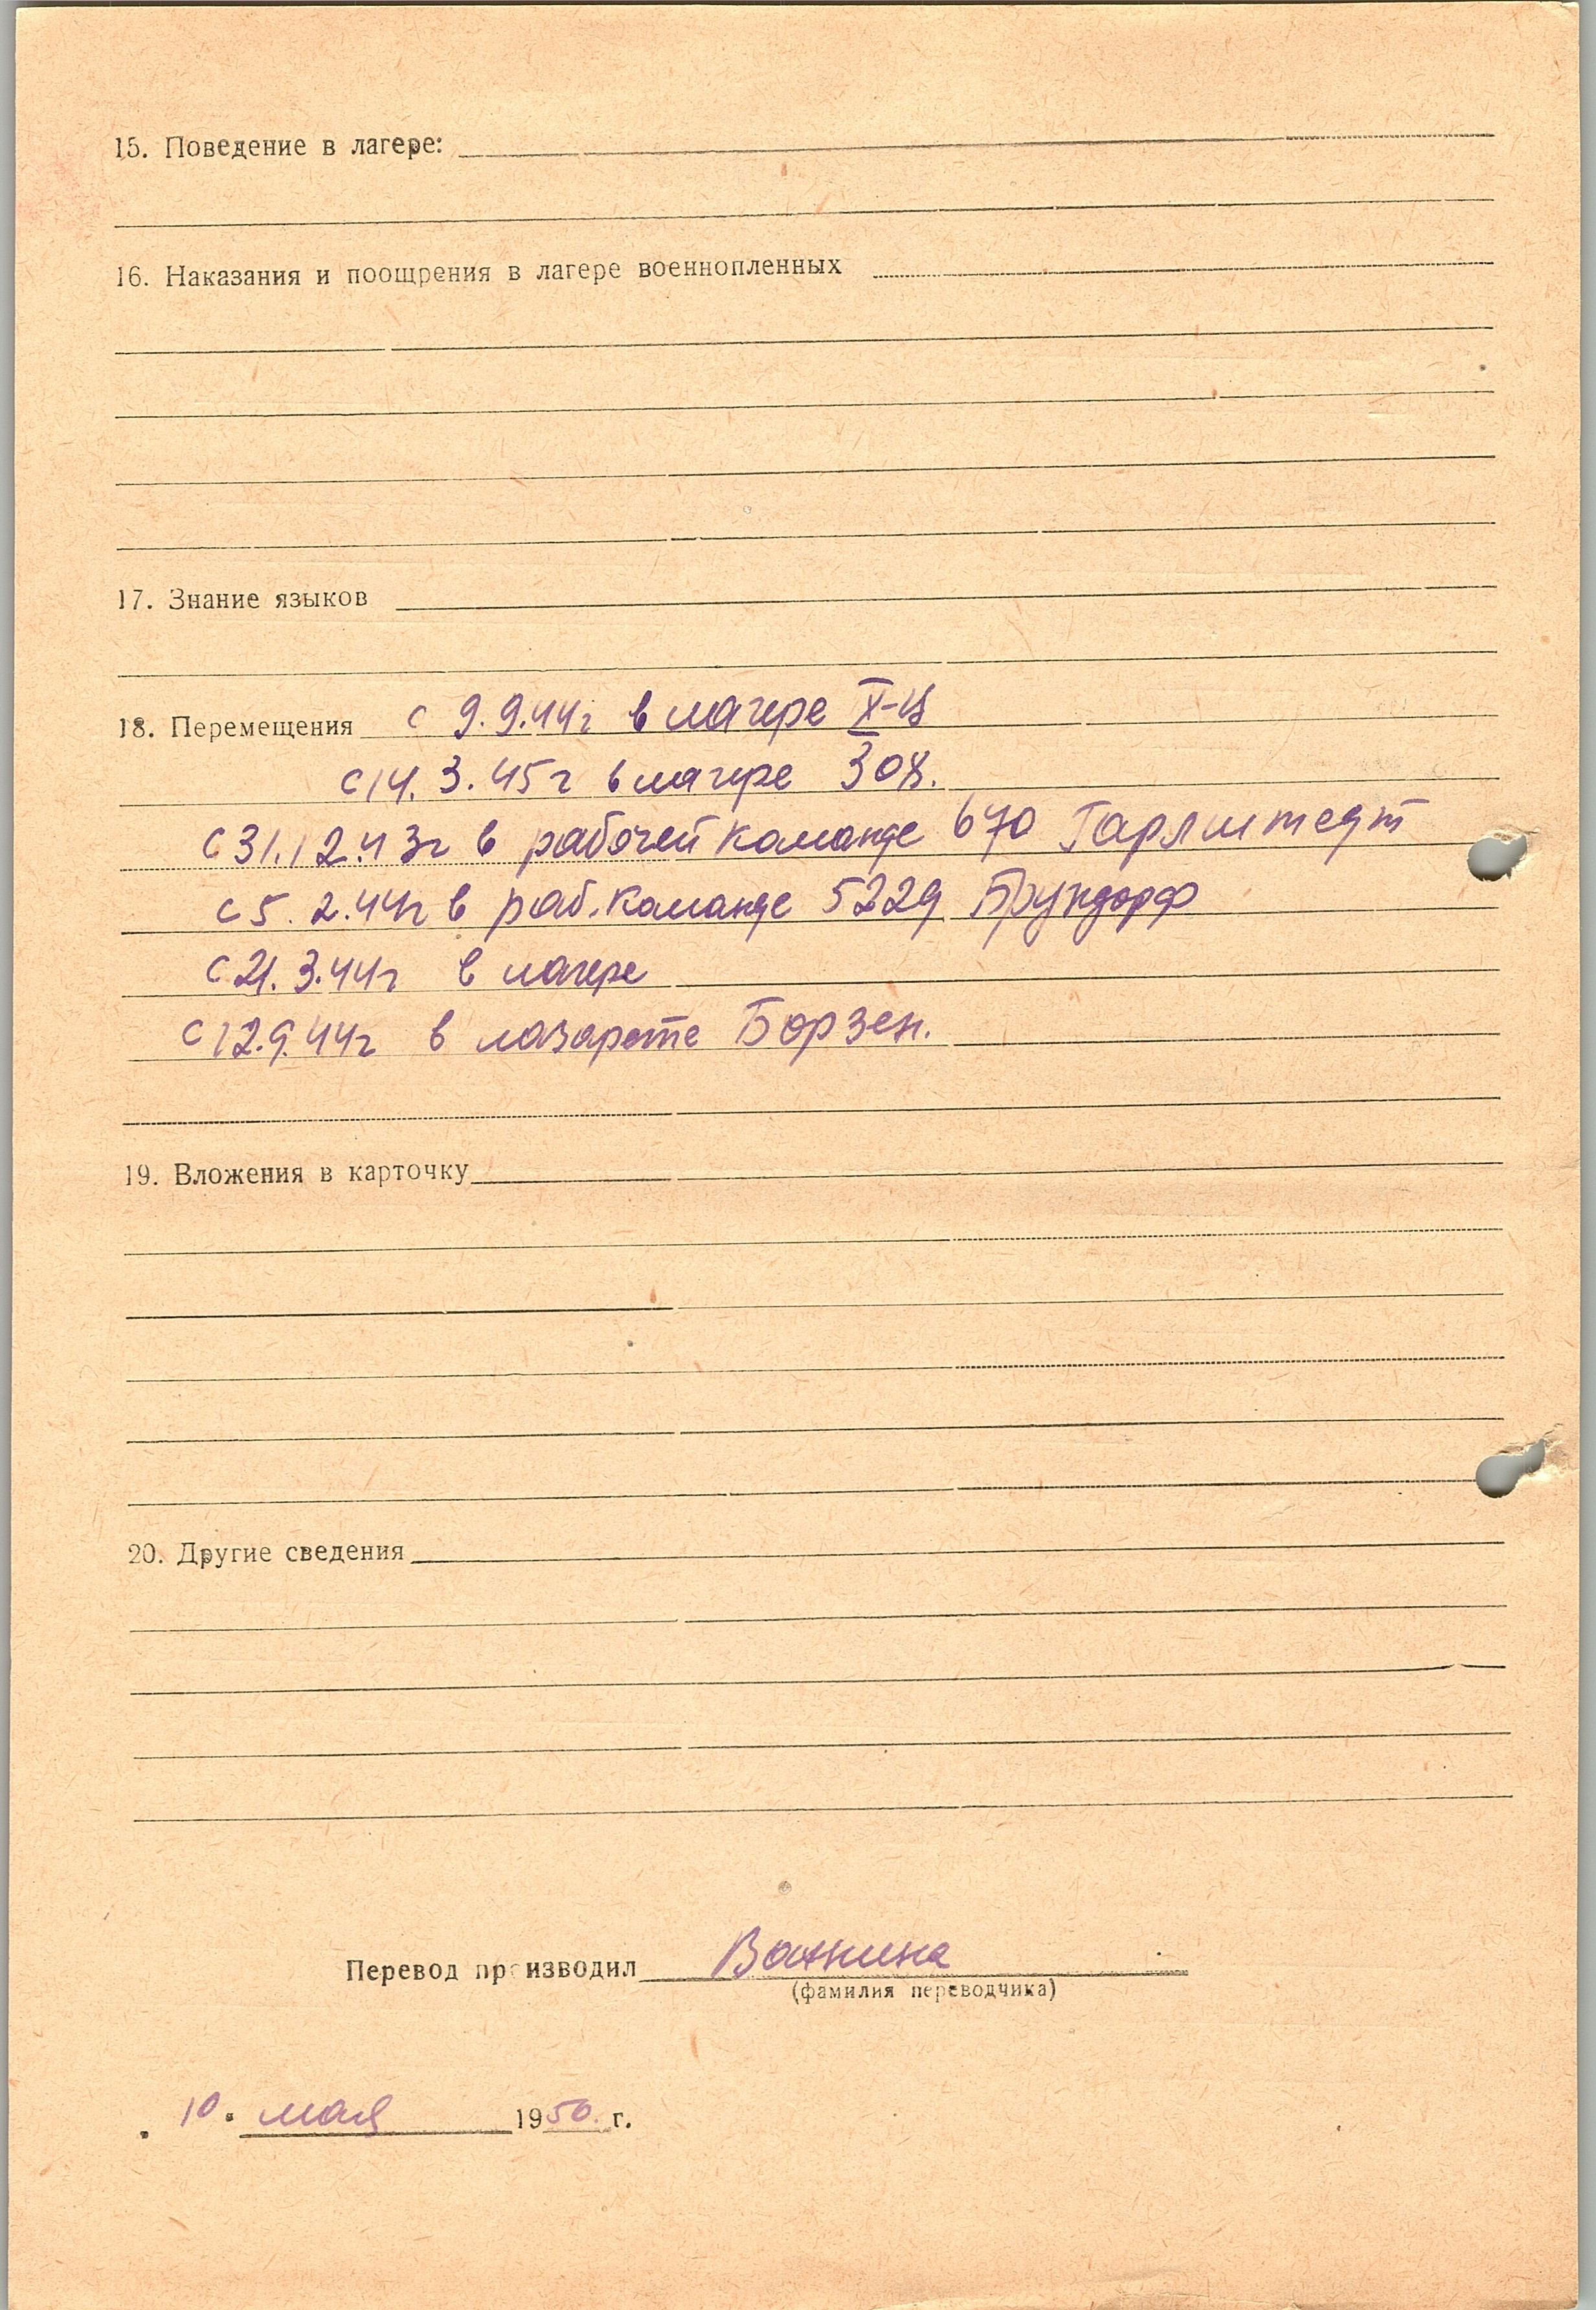 15. Поведение в лагере:
16. Наказания и поощрения в лагере военнопленных
17. Знание языков
18. Перемещения с 9.9.44г в лагере X-Ц
с 14.3.45г в лагере 308.
с 31.12.43г в рабочей команде 670 Гарлштедт
с 5.2.44г в раб. команде 5229 Брундорф
с 21.3.44г в лагере
с 12.9.44г в лазарете Борзен.
19. Вложения в карточку
20. Другие сведения
Перевод производил Ванина
(фамилия переводчика)
10. мая 1950. г.